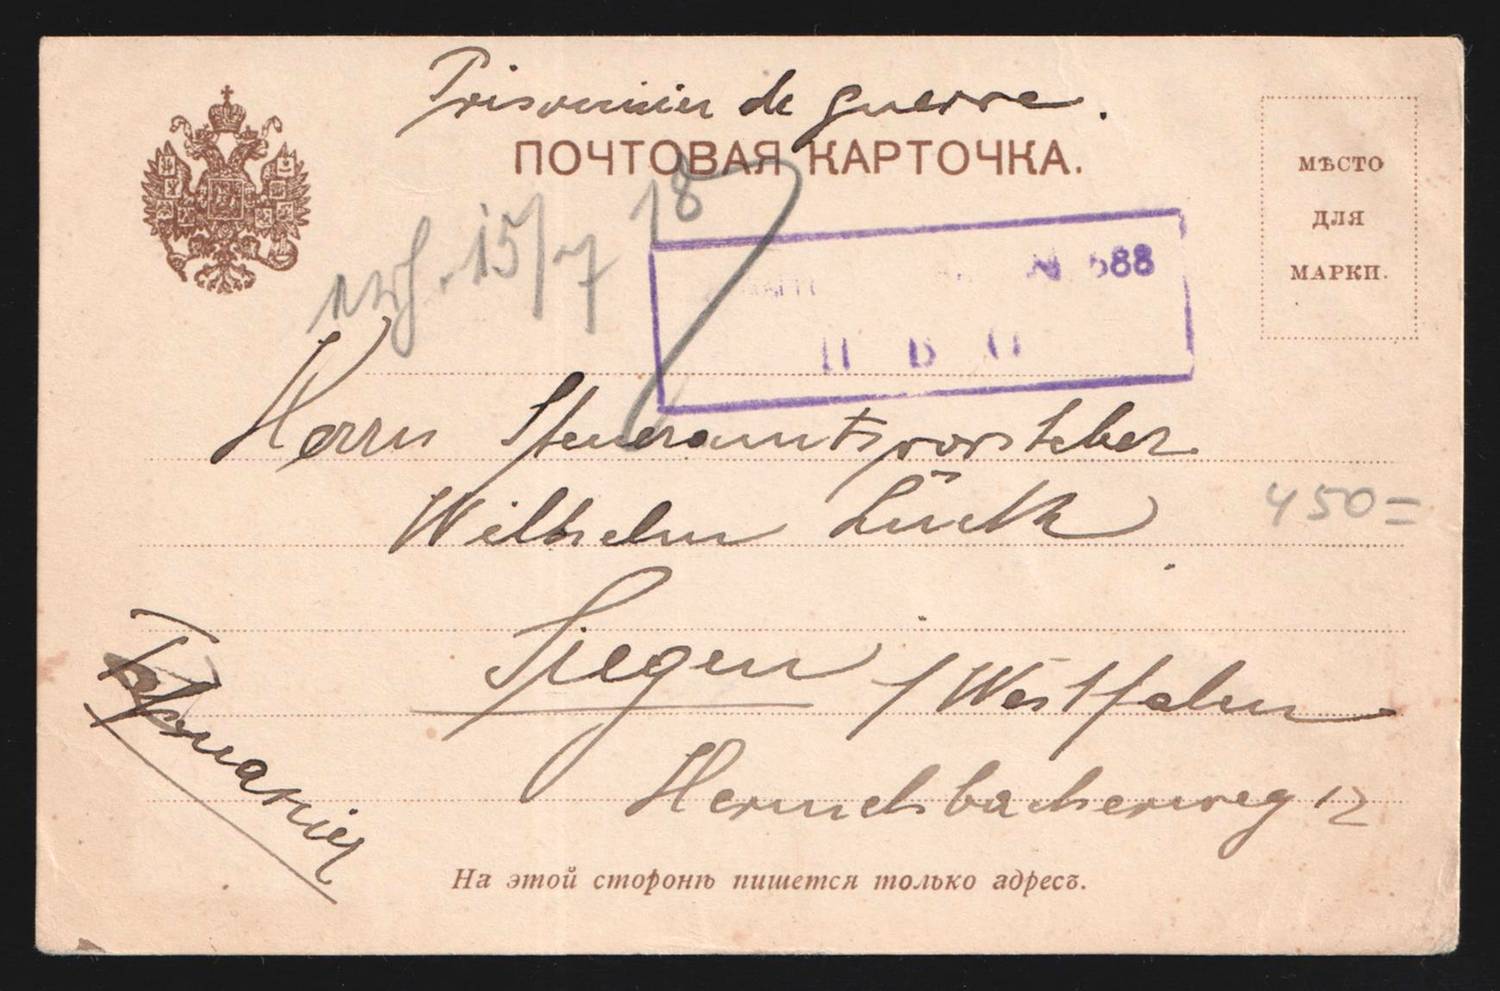 Prisonnier de guerre.
ПОЧТОВАЯ КАРТОЧКА.
МѢСТО
ДЛЯ
МАРКИ.
15/7 18
№ 588
Herrn Steueramtsvorsteher
Wilhelm Lück
450=
Siegen / Westfalen
Германія
12
На этой сторонѣ пишется только адресъ.